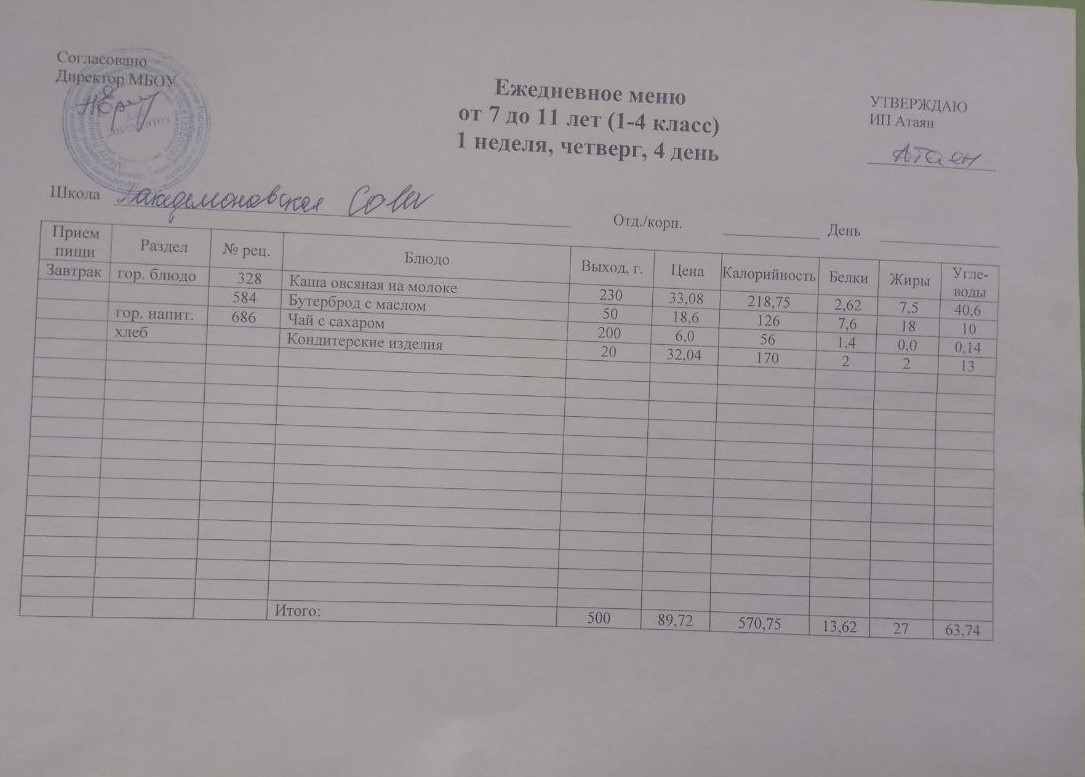 Согласовано
Директор МБОУ
Ежедневное меню
от 7 до 11 лет (1-4 класс)
1 неделя, четверг, 4 день
УТВЕРЖДАЮ
ИП Атаян
Атаян
Школа
Отд./корп. День
Прием пищи Раздел № рец. Блюдо Выход, г. Цена Калорийность Белки Жиры Угле-воды
Завтрак гор. блюдо 328 Каша овсяная на молоке 230 33,08 218,75 2,62 7,5 40,6
584 Бутерброд с маслом 50 18,6 126 7,6 18 10
гор. напит. 686 Чай с сахаром 200 6,0 56 1,4 0,0 0,14
хлеб Кондитерские изделия 20 32,04 170 2 2 13
Итого: 500 89,72 570,75 13,62 27 63,74